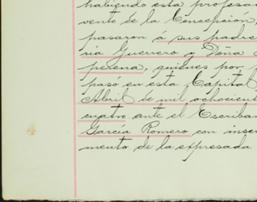 habiendo esta profesa
vento de la Concepcion,
pasaron á sus padre
ria Guerrero y Doña
perena, quienes por
pasó en esta Capital
Abril de mil ochocient
cuatro ante el Escriban
García Romero con inser
mento de la expresada